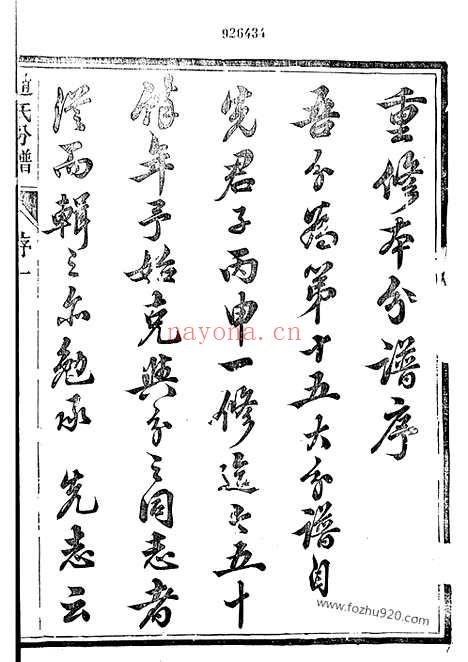 926434
重修本分譜序
吾分為第十五大分譜自
先君子丙申一修迄今五十
餘年予始克與分之同志者
從而輯之亦勉承 先志云
氏分譜
序一
nayona.cn
www.fozhu920.com